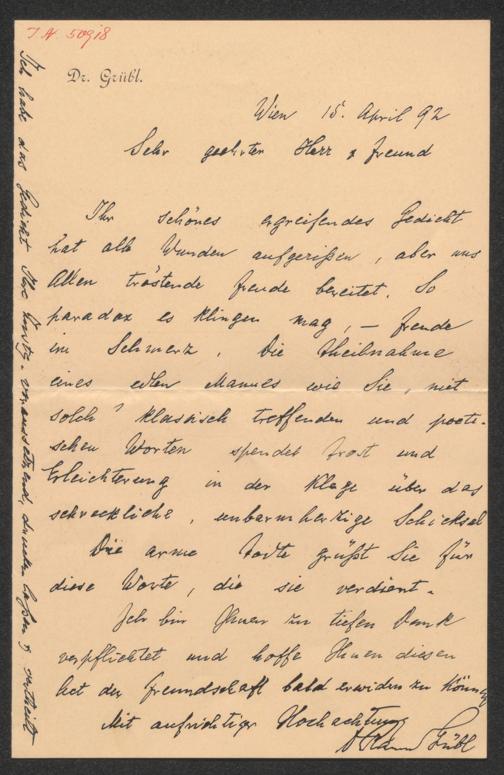 I. N. 50918
Dr. Grübl.
Wien 15. April 92
Sehr geehrter Herr & Freund
Ihr schönes ergreifendes Gedicht
hat alte Wunden aufgerißen, aber uns
Allen tröstende Freude bereitet. So
paradox es klingen mag, – Freude
im Schmerz. Die Theilnahme
eines edlen Mannes wie Sie, mit
solch' klassisch treffenden und poeti-
schen Worten spendet Trost und
Erleichterung in der Klage über das
schreckliche, unbarmherzige Schicksal
Die arme Todte grüßt Sie für
diese Worte, die sie verdient.
Ich bin Ihnen zu tiefen Dank
verpflichtet und hoffe Ihnen diesen
Act der Freundschaft bald erwidern zu können
Mit aufrichtiger Hochachtung
Grübl
Ich habe das Gedicht Ihre voraussetzend, drucken laßen & vertheilt